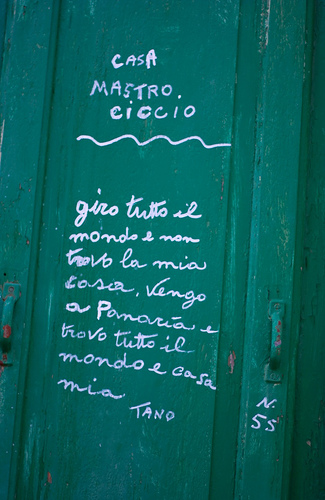 CASA
MASTRO.
CICCIO
giro tutto il
mondo e non
trovo la mia
casa. Vengo
a Panaria e
trovo tutto il
mondo e casa
mia
TANO
N.
55